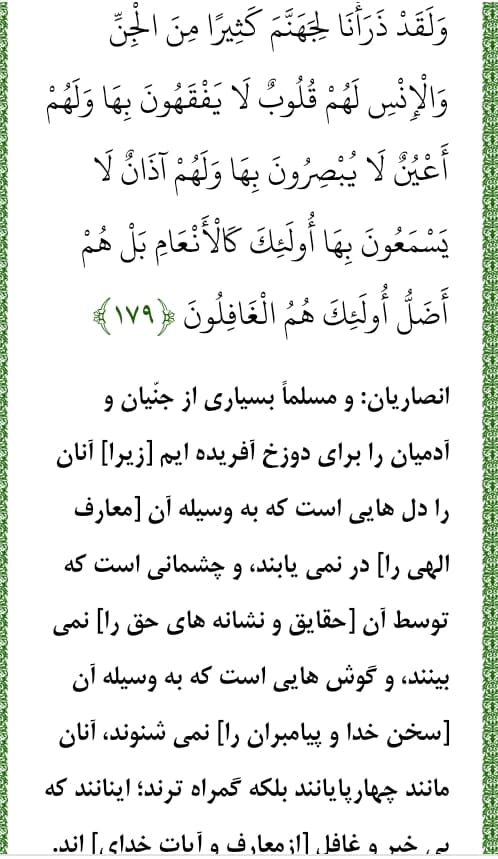 وَلَقَدْ ذَرَأْنَا لِجَهَنَّمَ كَثِيرًا مِنَ الْجِنِّ
وَالْإِنْسِ لَهُمْ قُلُوبٌ لَا يَفْقَهُونَ بِهَا وَلَهُمْ
أَعْيُنٌ لَا يُبْصِرُونَ بِهَا وَلَهُمْ آذَانٌ لَا
يَسْمَعُونَ بِهَا أُولَئِكَ كَالْأَنْعَامِ بَلْ هُمْ
أَضَلُّ أُولَئِكَ هُمُ الْغَافِلُونَ ﴿۱۷۹﴾
انصاریان: و مسلماً بسیاری از جنّیان و
آدمیان را برای دوزخ آفریده ایم [زیرا] آنان
را دل هایی است که به وسیله آن [معارف
الهی را] در نمی یابند، و چشمانی است که
توسط آن [حقایق و نشانه های حق را] نمی
بینند، و گوش هایی است که به وسیله آن
[سخن خدا و پیامبران را] نمی شنوند، آنان
مانند چهارپایانند بلکه گمراه ترند؛ اینانند که
بی خبر و غافل [از معارف و آیات خدای] اند.